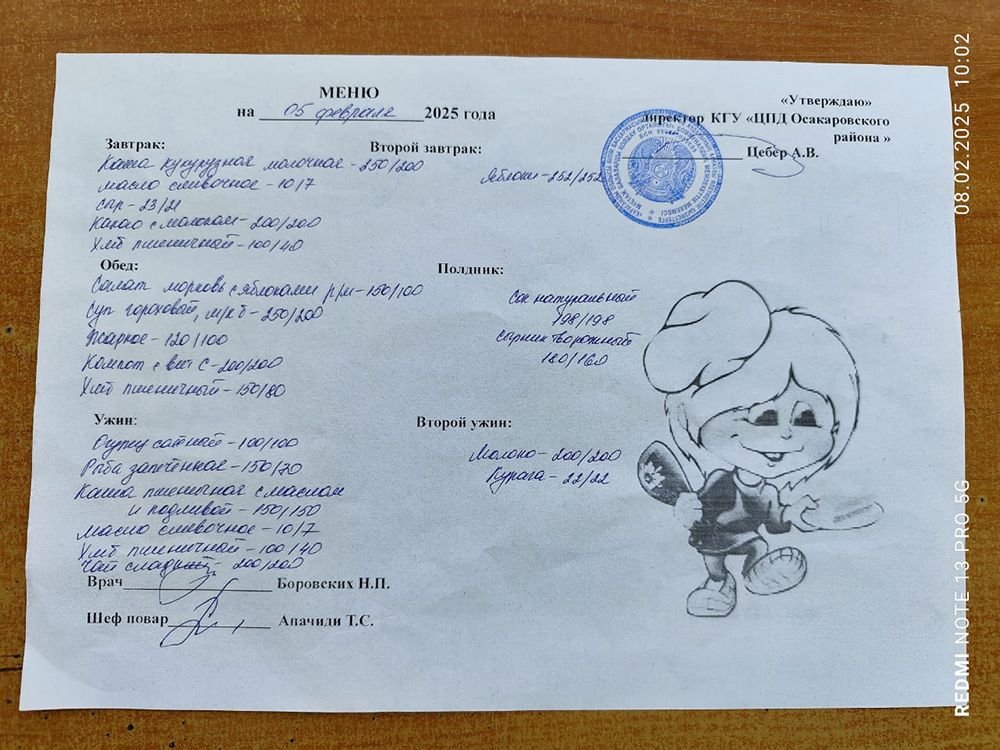 МЕНЮ
на 05 февраля 2025 года
«Утверждаю»
директор КГУ «ЦПД Осакаровского
района »
Цебер А.В.
Завтрак:
Каша кукурузная молочная - 250/200
масло сливочное - 10/7
сыр - 23/21
Какао с молоком - 200/200
Хлеб пшеничный - 100/40
Второй завтрак:
Яблоки - 252/252
Обед:
Салат морковь с яблоками р/м - 150/100
Суп гороховый, м/к б - 250/200
Жаркое - 120/100
Компот с вит С - 200/200
Хлеб пшеничный - 150/80
Полдник:
Сок натуральный
198/198
Сырник творожный
180/160
Ужин:
Огурец соленый - 100/100
Рыба запеченная - 150/70
Каша пшеничная с маслом
и подливой - 150/150
масло сливочное - 10/7
Хлеб пшеничный - 100/40
Чай сладкий - 200/200
Второй ужин:
Молоко - 200/200
Курага - 22/22
Врач Боровских Н.П.
Шеф повар Апачиди Т.С.
REDMI NOTE 13 PRO 5G 08.02.2025 10:02